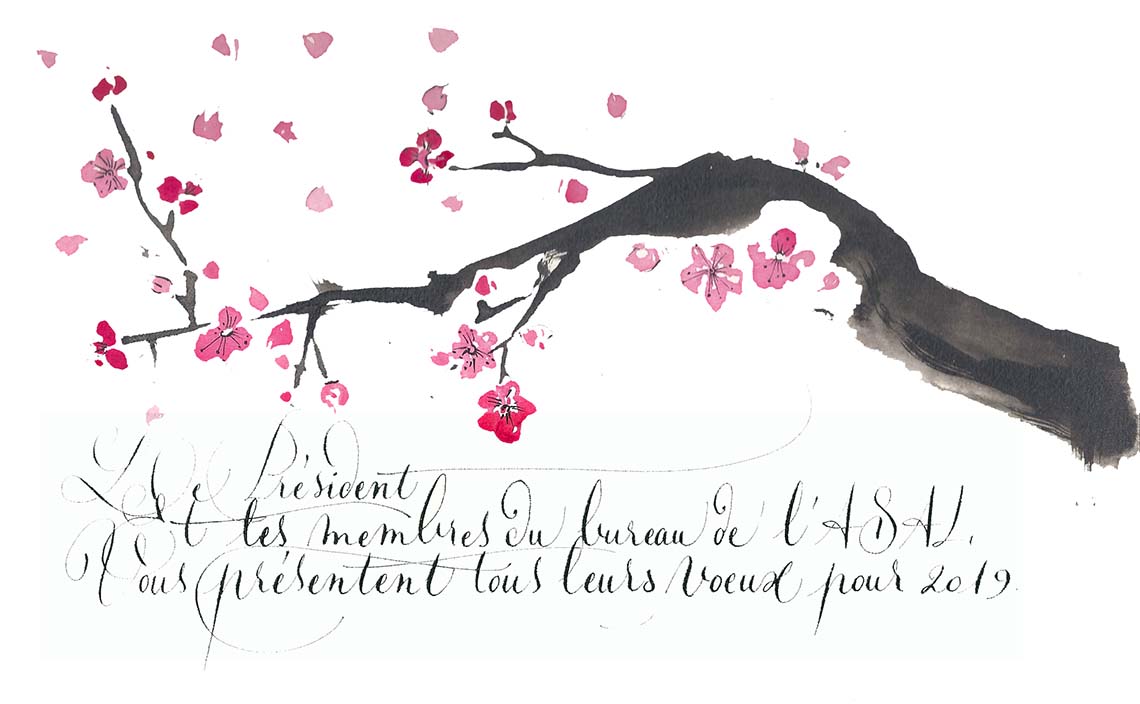 Le Président
Et les membres du bureau de l'ASAL,
Vous présentent tous leurs voeux pour 2019.